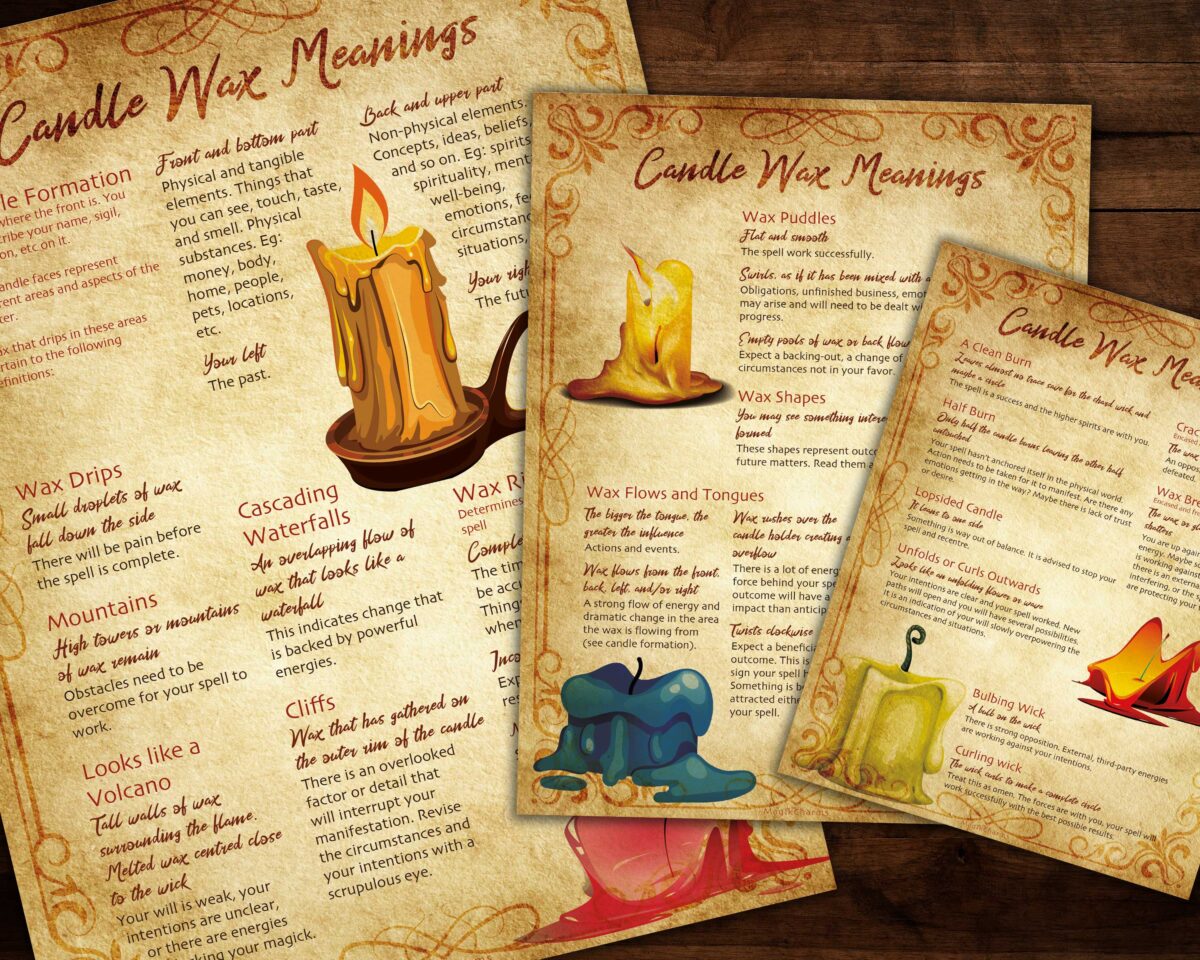 Candle Wax Meanings
le Formation
where the front is. You
cribe your name, sigil,
on, etc on it.
andle faces represent
rent areas and aspects of the
ter.
ax that drips in these areas
rtain to the following
efinitions:
Front and bottom part
Physical and tangible
elements. Things that
you can see, touch, taste,
and smell. Physical
substances. Eg:
money, body,
home, people,
pets, locations,
etc.
Your left
The past.
Back and upper part
Non-physical elements.
Concepts, ideas, beliefs,
and so on. Eg: spirits,
spirituality, ment
well-being,
emotions, fe
circumstanc
situations,
Your righ
The futu
Wax Drips
Small droplets of wax
fall down the side
There will be pain before
the spell is complete.
Mountains
High towers or mountains
of wax remain
Obstacles need to be
overcome for your spell to
work.
Looks like a
Volcano
Tall walls of wax
surrounding the flame.
Melted wax centred close
to the wick
Your will is weak, your
intentions are unclear,
or there are energies
king your magick.
Cascading
Waterfalls
An overlapping flow of
wax that looks like a
waterfall
This indicates change that
is backed by powerful
energies.
Cliffs
Wax that has gathered on
the outer rim of the candle
There is an overlooked
factor or detail that
will interrupt your
manifestation. Revise
the circumstances and
your intentions with a
scrupulous eye.
Wax Ri
Determines
spell
Comple
The tim
be accu
Thing
when
Inco
Exp
res
Candle Wax Meanings
Wax Puddles
Flat and smooth
The spell work successfully.
Swirls, as if it has been mixed with a
Obligations, unfinished business, emot
may arise and will need to be dealt w
progress.
Empty pools of wax or back flow
Expect a backing-out, a change of
circumstances not in your favor.
Wax Shapes
You may see something intere
formed
These shapes represent outco
future matters. Read them a
Wax Flows and Tongues
The bigger the tongue, the
greater the influence
Actions and events.
Wax flows from the front,
back, left, and/or right
A strong flow of energy and
dramatic change in the area
the wax is flowing from
(see candle formation).
Wax rushes over the
candle holder creating a
overflow
There is a lot of energ
force behind your spe
outcome will have a
impact than anticip
Twists clockwise
Expect a benefici
outcome. This is
sign your spell h
Something is b
attracted either
your spell.
MagikCharms
Candle Wax Mea
A Clean Burn
Leaves almost no trace save for the chard wick and
maybe a circle
The spell is a success and the higher spirits are with you.
Half Burn
Only half the candle burns leaving the other half
untouched
Your spell hasn't anchored itself in the physical world.
Action needs to be taken for it to manifest. Are there any
emotions getting in the way? Maybe there is lack of trust
or desire.
Lopsided Candle
It leans to one side
Something is way out of balance. It is advised to stop your
spell and recentre.
Unfolds or Curls Outwards
Looks like an unfolding flower or wave
Your intentions are clear and your spell worked. New
paths will open and you will have several possibilities.
It is an indication of your will slowly overpowering the
circumstances and situations.
Crac
Encased
The wax
An oppos
defeated.
Wax Bre
Encased and fre
The wax or
shatters
You are up again
energy. Maybe so
is working agains
there is an extern
interfering, or the
are protecting your
Bulbing Wick
A ball on the wick
There is strong opposition. External, third-party energies
are working against your intentions.
Curling wick
The wick curls to make a complete circle
Treat this as omen. The forces are with you, your spell will
work successfully with the best possible results.